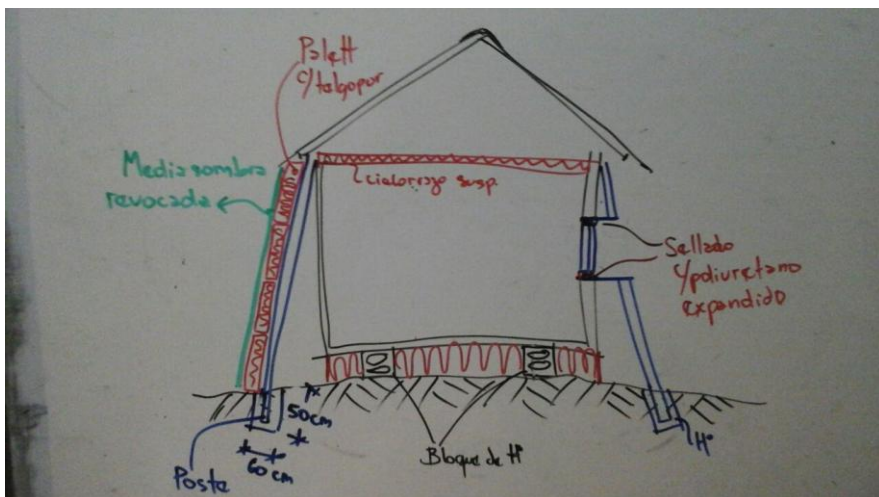 Palett
c/telgopor
Media sombra
revocada
cielorrazo susp.
Sellado
c/poliuretano
expandido
50cm
60 cm
Poste
Bloque de Hº
Hº